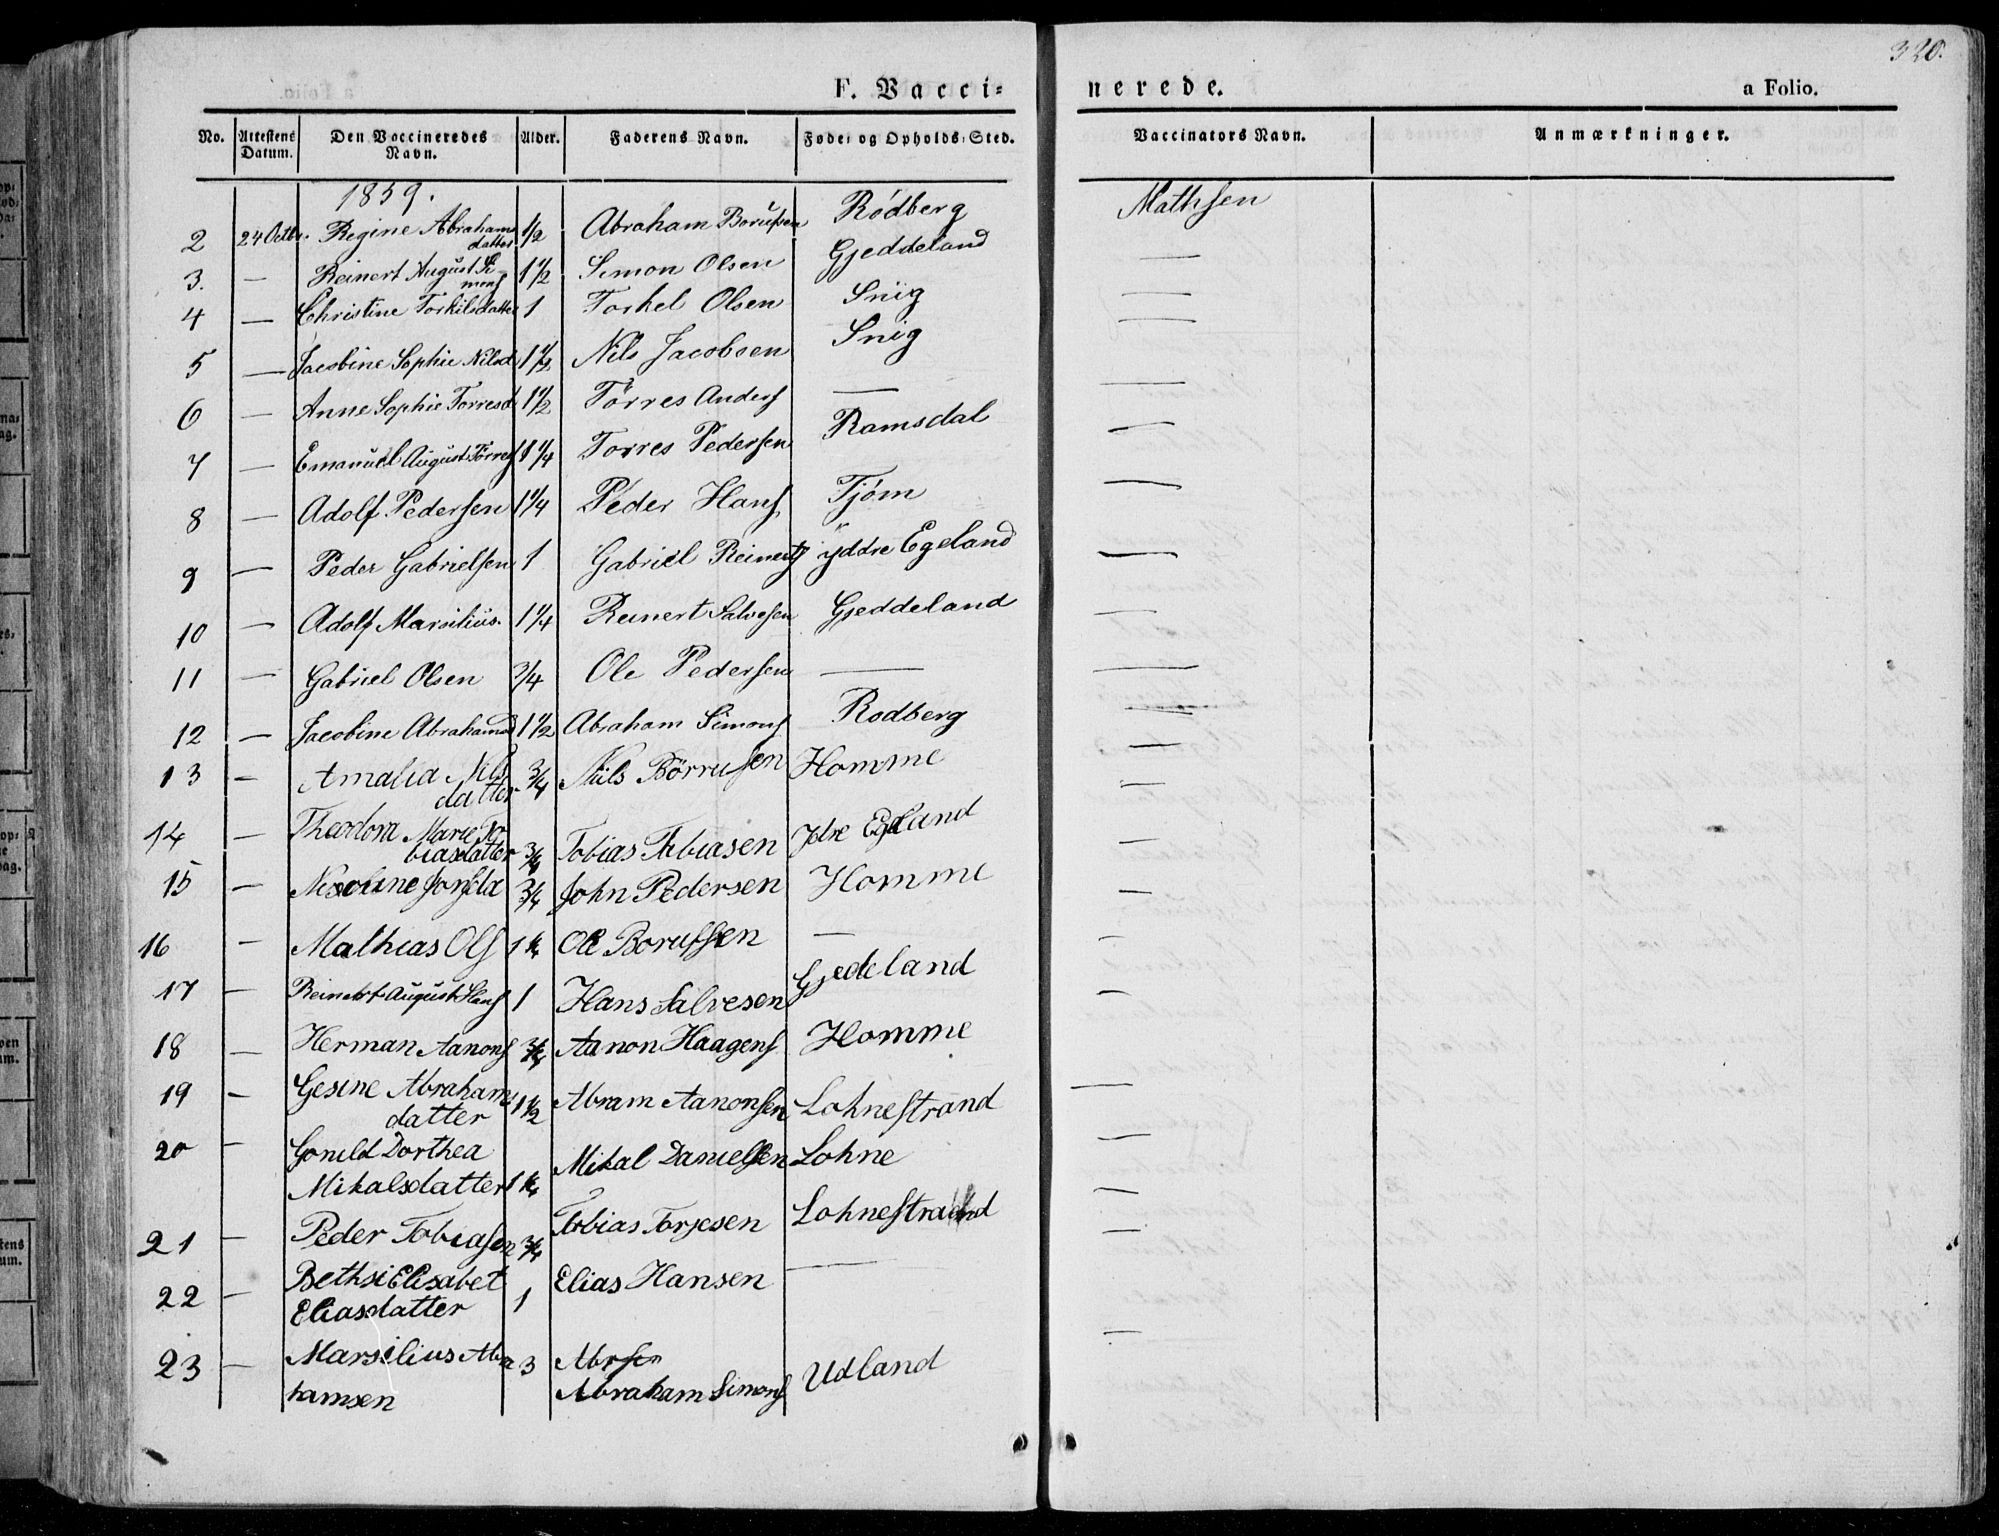 320.
F. Vacci=
nerede.
a Folio.
No. Attestens Datum. Den Vaccineredes Navn. Alder. Faderens Navn. Føde- og Opholds-Sted. Vaccinators Navn. Anmærkninger.
1859.
2 24 Octbr. Regine Abrahams datter 1/2 Abraham Borufsen Rødberg Mathsen
3. — Reinert August Si= mons 1 1/2 Simon Olsen Gjeddeland —
4 — Christine Torkilsdatter 1 Torkel Olsen Sniig —
5 — Jacobine Sophie Nilsd 1 1/2 Nils Jacobsen Snig —
6 — Anne Sophie Torresd 1 1/2 Törres Anders — —
7 — Emanuel August Törres 1 1/4 Torres Pedersen Ramsdal —
8 — Adolf Pedersen 1 1/4 Peder Hans Tjøm —
9 — Peder Gabrielsen 1 Gabriel Reinerts yddre Egeland —
10 — Adolf Marsilius. 1 1/4 Reinert Salvesen Gjeddeland —
11 — Gabriel Olsen 3/4 Ole Pedersen — —
12 — Jacobine Abrahamsd 1 1/2 Abraham Simons Rodberg —
13 — Amalia Nils datter 3/4 Nils Börrufsen Homme —
14 — Theodora Marie To biasdatter 3/4 Tobias Tobiasen Jdre Egeland —
15 — 3/4 John Pedersen Homme —
16 — Mathias Ols 1 1/4 Ole Borufsen — —
17 — Reinert August Hans 1 Hans Salvesen Gjedeland —
18 — Herman Aanons 3/4 Aanon Haagens Homme —
19 — Gesine Abrahams datter 1 1/2 Abram Aanonsen Lohnestrand —
20 — Gonild Dorthea Mikalsdatter 1 1/4 Mikal Danielsen Lohne —
21 — Peder Tobiasen 3/4 Tobias Torjesen Lohnestrand —
22 — Bethsi Elisabet Eliasdatter 1 Elias Hansen — —
23 — Marsilius Abra hamsen 3 Abraham Simons Udland —